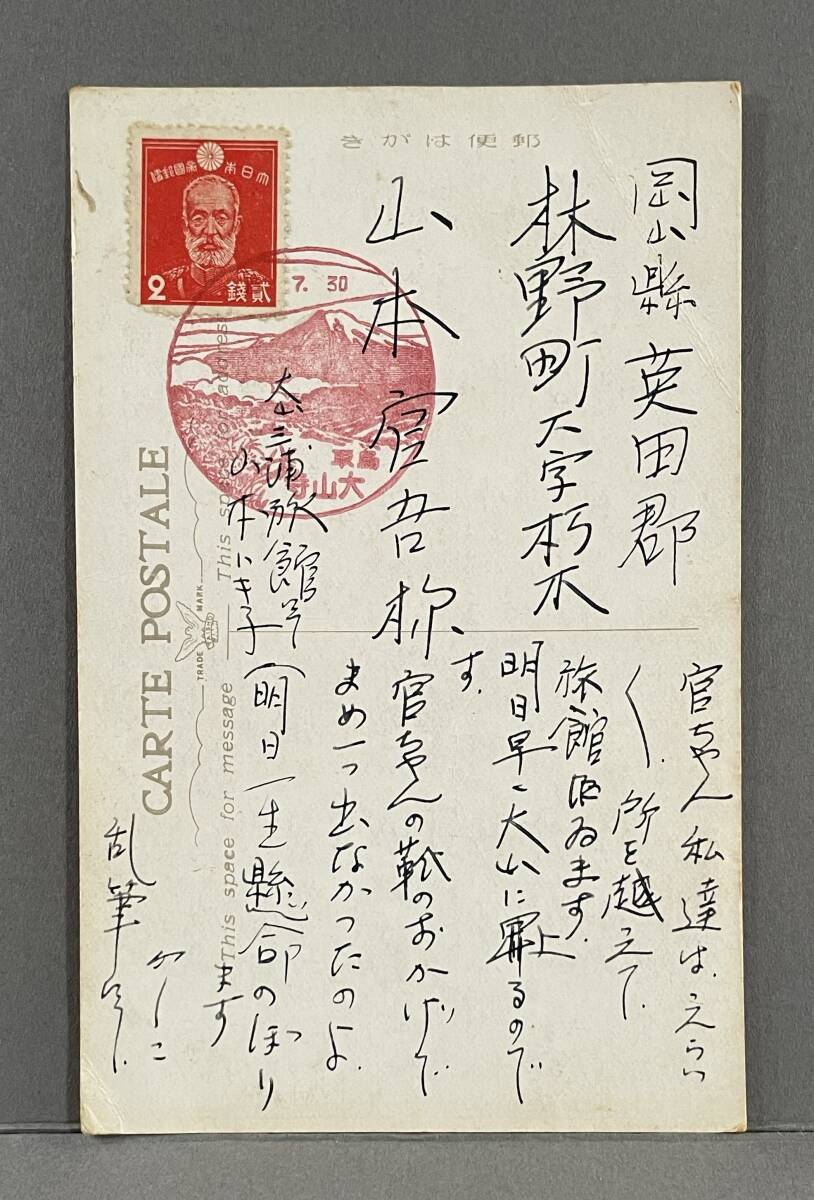 きがは便郵
大日本帝國郵便
2
貳錢
7. 30
鳥取
大山寺
岡山縣英田郡
林野町大字朽木
山本官吾様
大山三浦旅館ニテ
山本ハキ子
CARTE POSTALE
This space for address
TRADE MARK
This space for message
官ちゃん私達は、えらい
〱所を越えて、
旅館にゐます。
明日早く大山に上るので
す。
官ちゃんの靴のおかげで
まめ一つ出なかつたのよ
(明日一生懸命のぼり
ます
乱筆にて